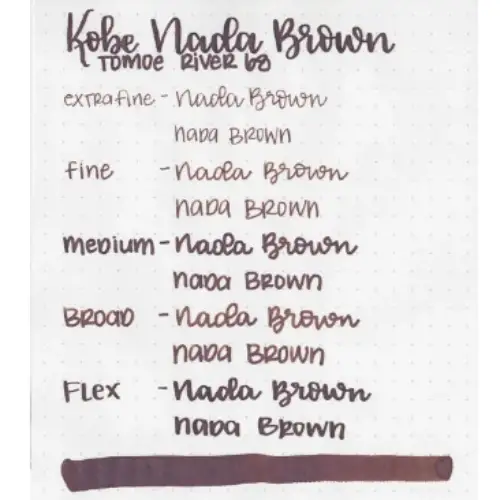 Kobe Nada Brown
TOMOE RIVER 68
extrafine - Nada Brown
NADA BROWN
Fine - Nada Brown
NADA BROWN
Medium - Nada Brown
NADA BROWN
BROAD - Nada Brown
NADA BROWN
Flex - Nada Brown
NADA BROWN